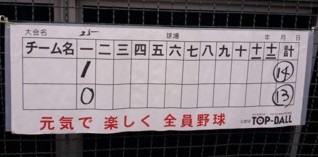 大会名 球場 年 月 日
チーム名 一 二 三 四 五 六 七 八 九 十 十一 十二 計
1 14
0 13
元気で 楽しく 全員野球 TOP-BALL